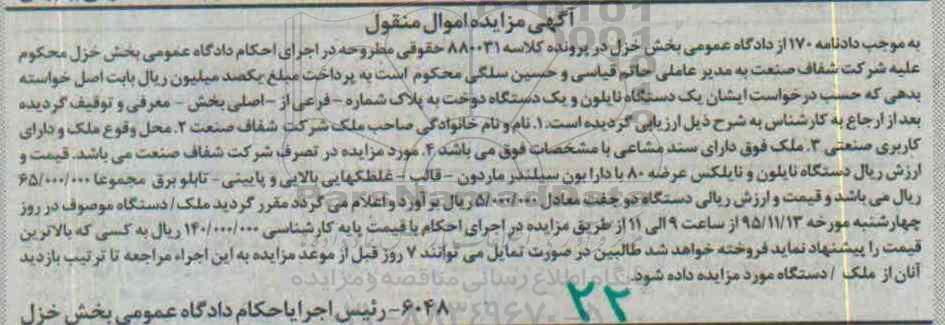 آگهی مزایده اموال منقول
به موجب دادنامه ۱۷۰ از دادگاه عمومی بخش خزل در پرونده کلاسه ۸۸۰۰۳۱ حقوقی مطروحه در اجرای احکام دادگاه عمومی بخش خزل محکوم
علیه شرکت شفاف صنعت به مدیر عاملی حاتم قیاسی و حسین سلگی محکوم است به پرداخت مبلغ یکصد میلیون ریال بابت اصل خواسته
بدهی که حسب درخواست ایشان یک دستگاه نایلون و یک دستگاه دوخت به پلاک شماره - فرعی از - اصلی بخش - معرفی و توقیف گردیده
بعد از ارجاع به کارشناس به شرح ذیل ارزیابی گردیده است. ۱. نام و نام خانوادگی صاحب ملک شرکت شفاف صنعت ۲. محل وقوع ملک و دارای
کاربری صنعتی ۳. ملک فوق دارای سند مشاعی با مشخصات فوق می باشد ۴. مورد مزایده در تصرف شرکت شفاف صنعت می باشد. قیمت و
ارزش ریال دستگاه نایلون و نایلکس عرضه ۸۰ با دارا بون سیلندر ماردون - قالب - غلطکهایی بالایی و پایینی - تابلو برق مجموعا ۶۵/۰۰۰/۰۰۰
ریال می باشد و قیمت و ارزش ریالی دستگاه دو جفت معادل ۵/۰۰۰/۰۰۰ ریال بر آورد و اعلام می گردد مقرر گردید ملک/ دستگاه موصوف در روز
چهارشنبه مورخه ۹۵/۱۱/۱۳ از ساعت ۹ الی ۱۱ از طریق مزایده در اجرای احکام با قیمت پایه کارشناسی ۱۴۰/۰۰۰/۰۰۰ ریال به کسی که بالاترین
قیمت را پیشنهاد نماید فروخته خواهد شد طالبین در صورت تمایل می توانند ۷ روز قبل از موعد مزایده به این اجراء مراجعه تا ترتیب بازدید
آنان از ملک / دستگاه مورد مزایده داده شود.
۲۲
۶۰۴۸- رئیس اجرایاحکام دادگاه عمومی بخش خزل